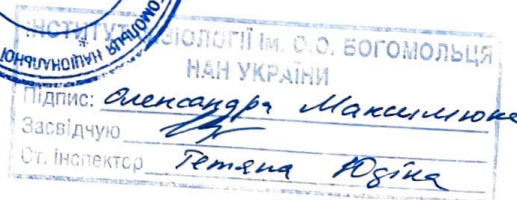 ІНСТИТУТ ФІЗІОЛОГІЇ ім. О.О. БОГОМОЛЬЦЯ
НАН УКРАЇНИ
Підпис: Олександра Максимюка
Засвідчую
Ст. інспектор Тетяна Юдіна
БОГОМОЛЬЦЯ НАЦІОНАЛЬНОЇ